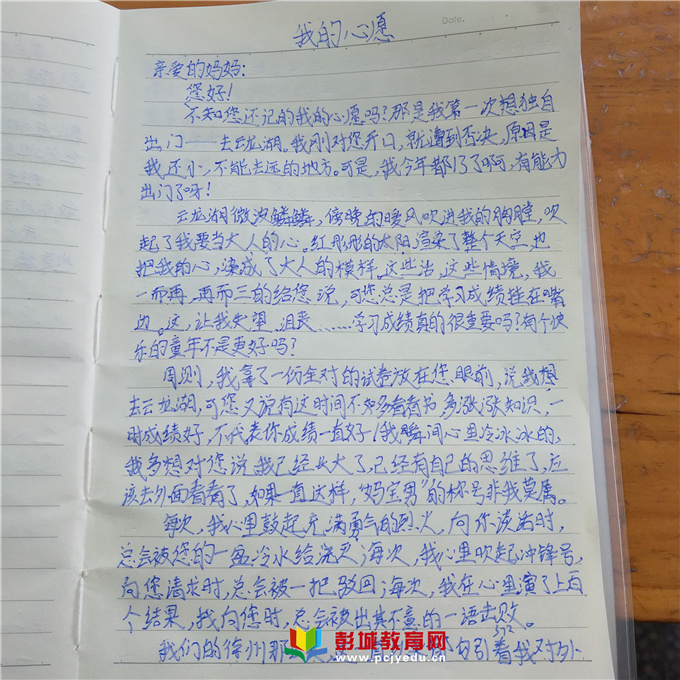 Date.
我的心愿
亲爱的妈妈：
您好！
不知您还记的我的心愿吗？那是我第一次想独自
出门——去云龙湖。我刚对您开口，就遭到否决，原因是
我还小，不能去远的地方。可是，我今年都13了啊，有能力
出门了呀！
云龙湖微波鳞鳞，傍晚的暖风吹进我的胸膛，吹
起了我要当大人的心。红彤彤的太阳渲染了整个天空，也
把我的心，染成了大人的模样。这些话，这些情境，我
一而再，再而三的给您说，可您总是把学习成绩挂在嘴
边。这，让我失望、沮丧……学习成绩真的很重要吗？有个快
乐的童年不是更好吗？
周测，我拿了一份全对的试卷放在您眼前，说我想
去云龙湖，可您又说有这时间不如多看看书，多涨涨知识，一
时成绩好，不代表你成绩一直好！我瞬间心里冷冰冰的，
我多想对您说我已经长大了，已经有自己的思维了，应
该去外面看看了，如果一直这样，“妈宝男”的称号非我莫属。
每次，我心里鼓起充满勇气的烈火，向你谈话时，
总会被您的一盆冷水给浇灭；每次，我心里吹起冲锋号，
向您请求时，总会被一把驳回；每次，我在心里演了上百
个结果，我向您时，总会被出其不意的一语击败。
我们的徐州那 引着我对外
彭城教育网
www.pcjyedu.cn